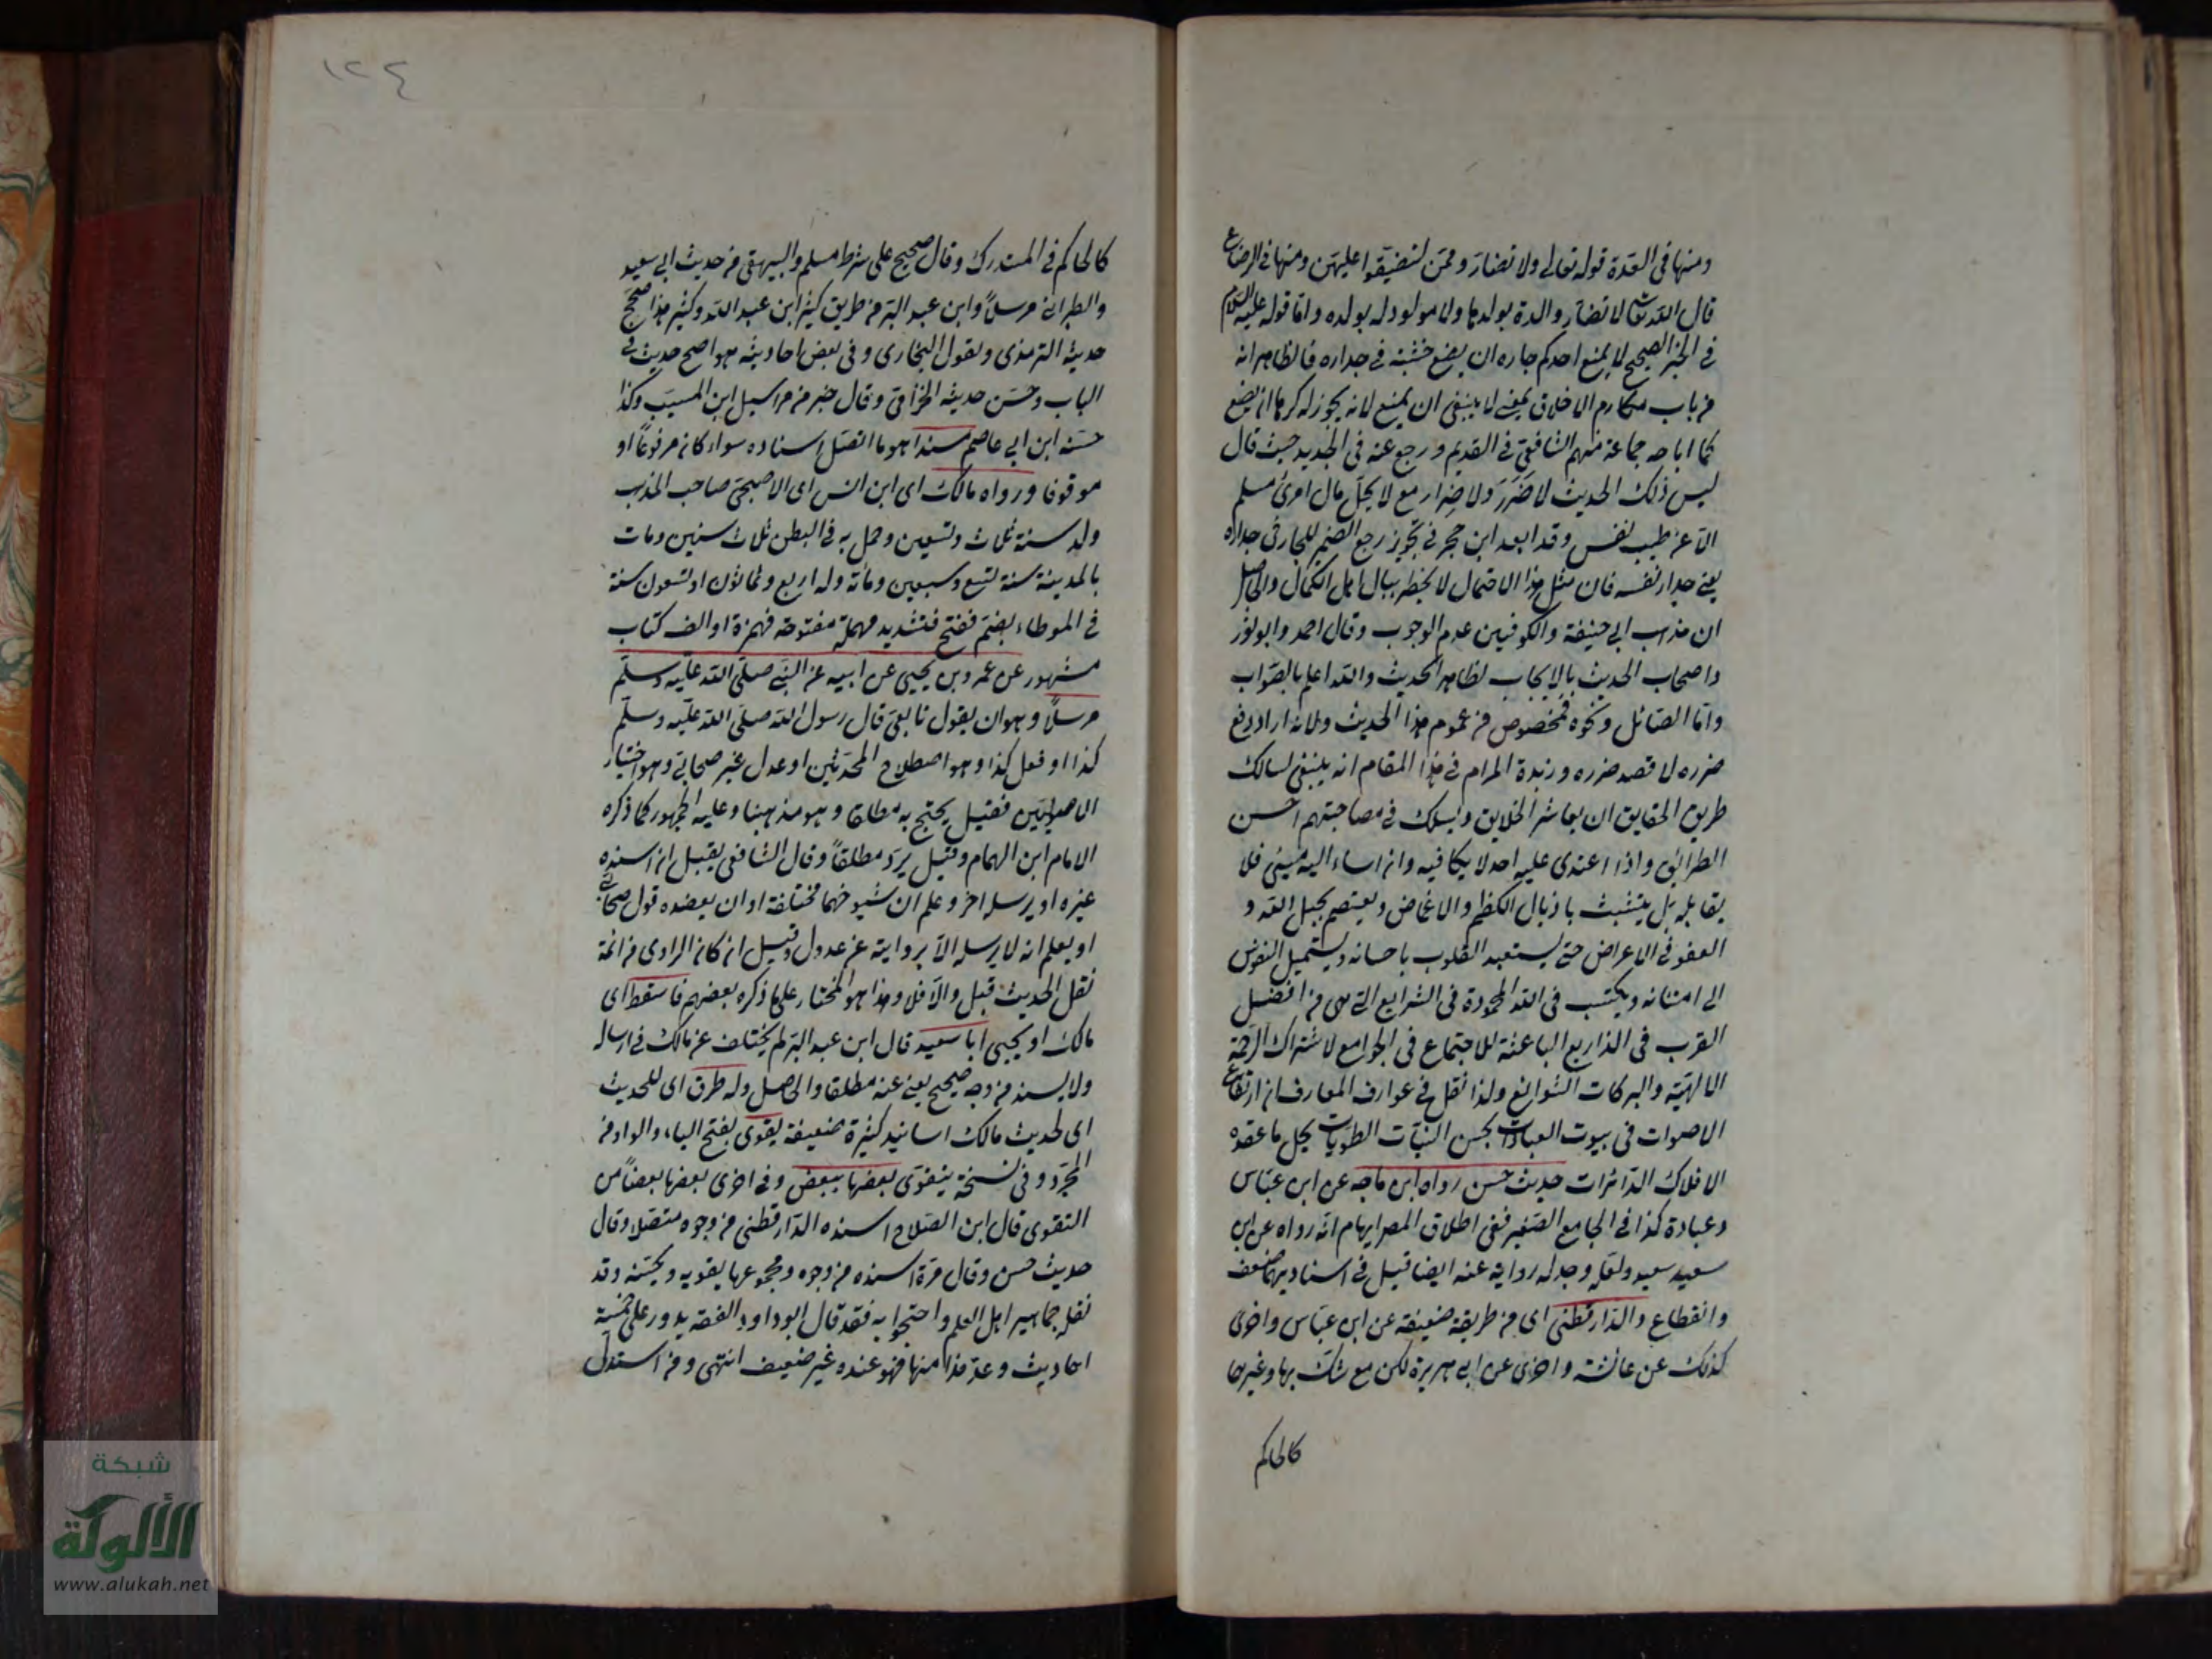 ومنها في العدة قوله تعالى ولا تضاروهن لتضيقوا عليهن ومنها في الرضاع
قال الله تعالى لا تضار والدة بولدها ولا مولود له بولده واما قوله عليه السلام
في الخبر الصحيح لا يمنع احدكم جاره ان يضع خشبة في جداره فالظاهر انه
من باب مكارم الاخلاق يعني لا ينبغي ان يمنع لانه يجوز له كرها ان يضع
كما اباحه جماعة منهم الشافعي في القديم ورجع عنه في الجديد حيث قال
ليس ذلك الحديث لا ضرر ولا ضرار مع لا يحل مال امرئ مسلم
الا عن طيب نفس وقد ابعد ابن حجر في تجويز رجع الضمير للجار في جداره
يعني جدار نفسه فان مثل هذا الاحتمال لا يخطر ببال اهل الكمال والحاصل
ان مذهب ابي حنيفة والكوفيين عدم الوجوب وقال احمد وابو ثور
واصحاب الحديث بالايجاب لظاهر الحديث والله اعلم بالصواب
واما الصائل ونحوه فمخصوص من عموم هذا الحديث ولانه اراد دفع
ضرره لا قصد ضرره وزبدة المرام في هذا المقام انه ينبغي لسالك
طريق الحقايق ان يعاشر الخلايق ويسلك في مصاحبتهم احسن
الطرائق واذا اعتدى عليه احد لا يكافيه وان اساء اليه مسيئ فلا
يقابله بل يتشبث باذيال الكظم والاغماض ويعتصم بحبل الله و
العفو في الاعراض حتى يستعبد القلوب باحسانه ويستميل النفوس
الى امتنانه ويكتسب في الله المحمودة في الشرايع التي هي من افضل
القرب في الذرايع الباعثة للاجتماع في الجوامع لاشتراك الرحمة
الالهية والبركات السوابغ ولذا نقل في عوارف المعارف ان ارتفاع
الاصوات في بيوت العبادات بحسن النيات الطويات يحل ما عقده
الافلاك الدائرات حديث حسن رواه ابن ماجه عن ابن عباس
وعبادة كذا في الجامع الصغير ففي اطلاق المصر ايهام انه رواه عن ابي
سعيد سعيد ولعله وجد له رواية عنه ايضا قيل في اسناديهما ضعف
وانقطاع والدارقطني اي من طريقة ضعيفة عن ابن عباس واخرى
كذلك عن عائشة واخرى عن ابي هريرة لكن مع شك بها وغيرها
كالحاكم
١٢٤
كالحاكم في المستدرك وقال صحيح على شرط مسلم والبيهقي من حديث ابي سعيد
والطبراني مرسلاً وابن عبد البر من طريق كثير ابن عبد الله وكثير هذا صحح
حديثه الترمذي ويقول البخاري وفي بعض احاديثه هو اصح حديث في
الباب وحسن حديثه الحزامي وقال خبر من مراسيل ابن المسيب وكذا
حسنه ابن ابي عاصم مسندا هو ما اتصل اسناده سواء كان مرفوعاً او
موقوفا ورواه مالك اي ابن انس اي الاصبحي صاحب المذهب
ولد سنة ثلاث وتسعين وحمل به في البطن ثلاث سنين ومات
بالمدينة سنة تسع وسبعين ومائة وله اربع وثمانون او تسعون سنة
في الموطاء بضم ففتح فتشديد مهملة مفتوحة فهمزة او الف كتاب
مشهور عن عمرو بن يحيى عن ابيه عن النبي صلى الله عليه وسلم
مرسلاً وهو ان يقول تابعي قال رسول الله صلى الله عليه وسلم
كذا او فعل كذا وهو اصطلاح المحدثين او عدل غير صحابي وهو اختيار
الاصوليين فقيل يحتج به مطلقا وهو مذهبنا وعليه الجمهور كما ذكره
الامام ابن الهمام وقيل يرد مطلقاً وقال الشافعي يقبل ان اسنده
غيره او يرسله اخر وعلم ان شيوخهما مختلفة او ان يعضده قول صحابي
او يعلم انه لا يرسله الا بروايته عن عدول وقيل ان كان الراوي من ائمة
نقل الحديث قبل والا فلا وهذا هو المختار على ما ذكره بعضهم فاسقط اي
مالك او يحيى ابا سعيد قال ابن عبد البر لم يختلف عن مالك في ارساله
ولا يسند من وجه صحيح يعني عنه مطلقا والحاصل وله طرق اي للحديث
اي لحديث مالك اسانيد كثيرة ضعيفة يقوى بفتح الياء والواو من
المجرد وفي نسخة يتقوى بعضها ببعض وفي اخرى بعضها بعضاً من
التقوى قال ابن الصلاح اسنده الدارقطني من وجوه متصلا وقال
حديث حسن وقال مرة اسنده من وجوه ومجموعها يقويه ويحسنه وقد
نقله جماهير اهل العلم واحتجوا به فقد قال ابو داود الفقه يدور على خمسة
احاديث وعد هذا منها فهو عنده غير ضعيف انتهى ومن استدل
شبكة
الألوكة
www.alukah.net